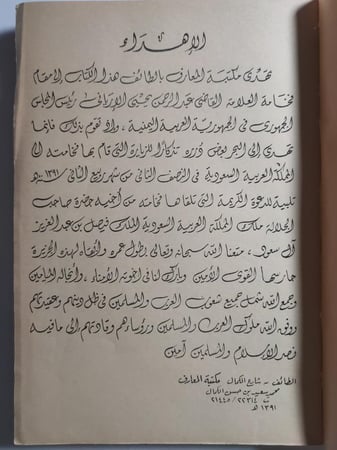 الإهداء
تهدي مكتبة المعارف بالطائف هذا الكتاب إلى مقام
فخامة العلامة القاضي عبد الرحمن بن يحيى الإرياني رئيس المجلس
الجمهوري في الجمهورية العربية اليمنية، وإذ تقوم بذلك فإنما
تهدي إلى البحر بعض درره تذكارًا للزيارة التي قام بها فخامته إلى
المملكة العربية السعودية في النصف الثاني من شهر ربيع الثاني ١٣٩١ هـ
تلبية للدعوة الكريمة التي تلقاها فخامته من أخيه حضرة صاحب
الجلالة ملك المملكة العربية السعودية الملك فيصل بن عبد العزيز
آل سعود، متعنا الله سبحانه وتعالى بطول عمره وأبقاه لهذه الجزيرة
حارسها القوي الأمين وبارك لنا في أخوته الأمناء، وأنجاله الميامين
وجمع الله شمل جميع شعوب العرب والمسلمين في ظل دينهم وعقيدتهم
ووفق الله ملوك العرب والمسلمين ورؤساءهم وقادتهم إلى ما فيه
نصر الإسلام والمسلمين آمين
الطائف - شارع الكمال مكتبة المعارف
محمد سعيد بن حسن الكمال
ت ٢٢٣١٤ / ٢١٤٤٥
١٣٩١ هـ